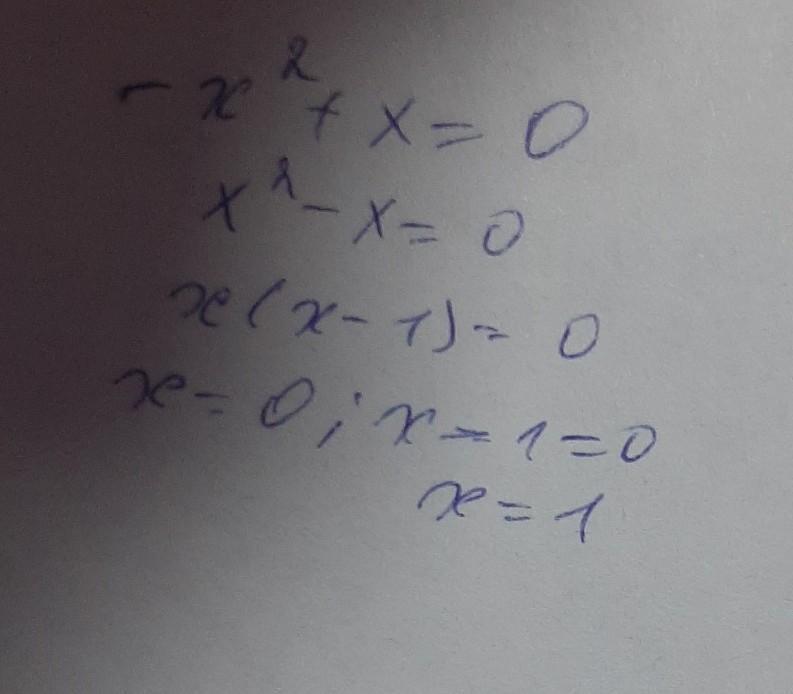 -x² + x = 0
x² - x = 0
x(x - 1) = 0
x = 0; x - 1 = 0
x = 1